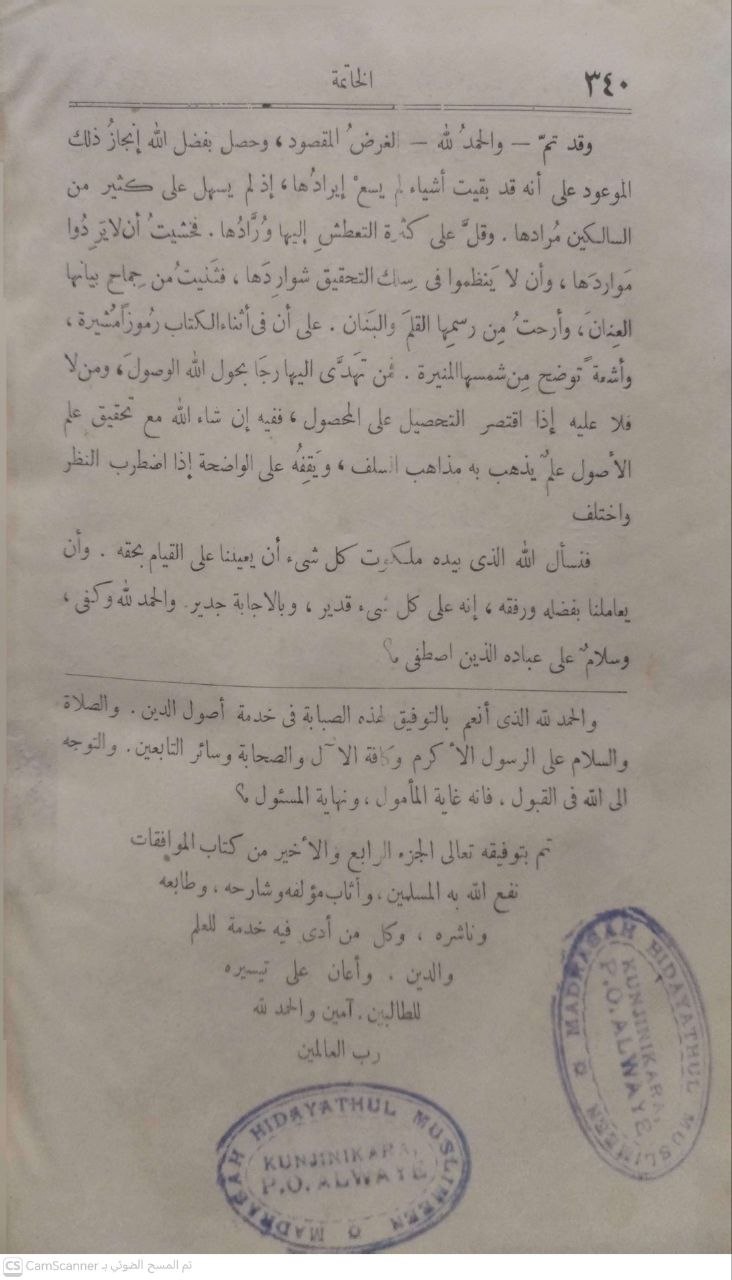 ٣٤٠
الخاتمة
وقد تمّ — والحمدُ لله — الغرضُ المقصود، وحصل بفضل الله إنجازُ ذلك
الموعود على أنه قد بقيت أشياء لم يسعْ إيرادُها، إذ لم يسهل على كثير من
السالكين مُرادها. وقلَّ على كثرة التعطش إليها وُرَّادُها. فخشيتُ أن لا يَرِدُوا
مَواردَها، وأن لا يَنظموا فى سِلك التحقيق شوارِدَها، فثَنيتُ من جِماح بيانها
العِنانَ، وأرحتُ مِن رسمِها القلمَ والبَنان. على أن فى أثناء الكتاب رُموزاً مُشيرة،
وأشعةً توضح مِن شمسها المنيرة. فمن تهَدَّى اليها رجَا بحول الله الوصولَ، ومن لا
فلا عليه إذا اقتصر التحصيل على المحصول، ففيه إن شاء الله مع تحقيق علم
الأصول علمٌ يذهب به مذاهب السلف، ويَقِفُه على الواضحة إذا اضطرب النظر
واختلف
فنسأل الله الذى بيده ملكوت كل شىء أن يعيننا على القيام بحقه. وأن
يعاملنا بفضله ورفقه، إنه على كل شىء قدير، وبالاجابة جدير. والحمد لله وكفى،
وسلامٌ على عباده الذين اصطفى م؟
والحمد لله الذى أنعم بالتوفيق لهذه الصبابة فى خدمة أصول الدين. والصلاة
والسلام على الرسول الأكرم وكافة الآل والصحابة وسائر التابعين. والتوجه
الى الله فى القبول، فانه غاية المأمول، ونهاية المسئول م؟
تم بتوفيقه تعالى الجزء الرابع والأخير من كتاب الموافقات
نفع الله به المسلمين، وأثاب مؤلفه وشارحه، وطابعه
وناشره، وكل من أدى فيه خدمة للعلم
والدين. وأعان على تيسيره
للطالبين. آمين والحمد لله
رب العالمين
MADRASAH HIDAYATHUL MUSLIMEEN
KUNJINIKARA,
P.O. ALWAYE
MADRASAH HIDAYATHUL MUSLIMEEN
KUNJINIKARA,
P.O. ALWAYE
CS CamScanner تم المسح الضوئي بـ